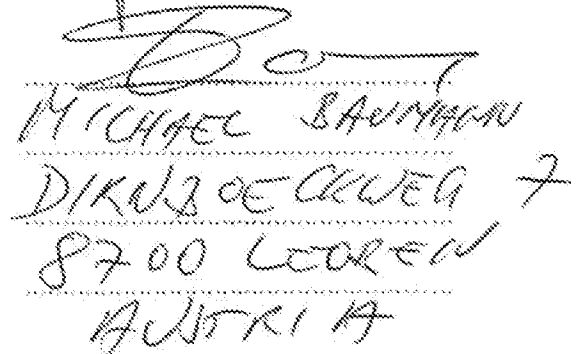 MICHAEL BAUMANN
DIRNBOECKWEG 7
8700 LEOBEN
AUSTRIA